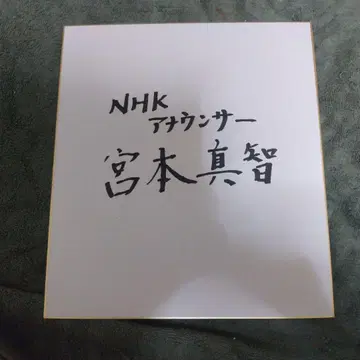 NHK
アナウンサー
宮本真智